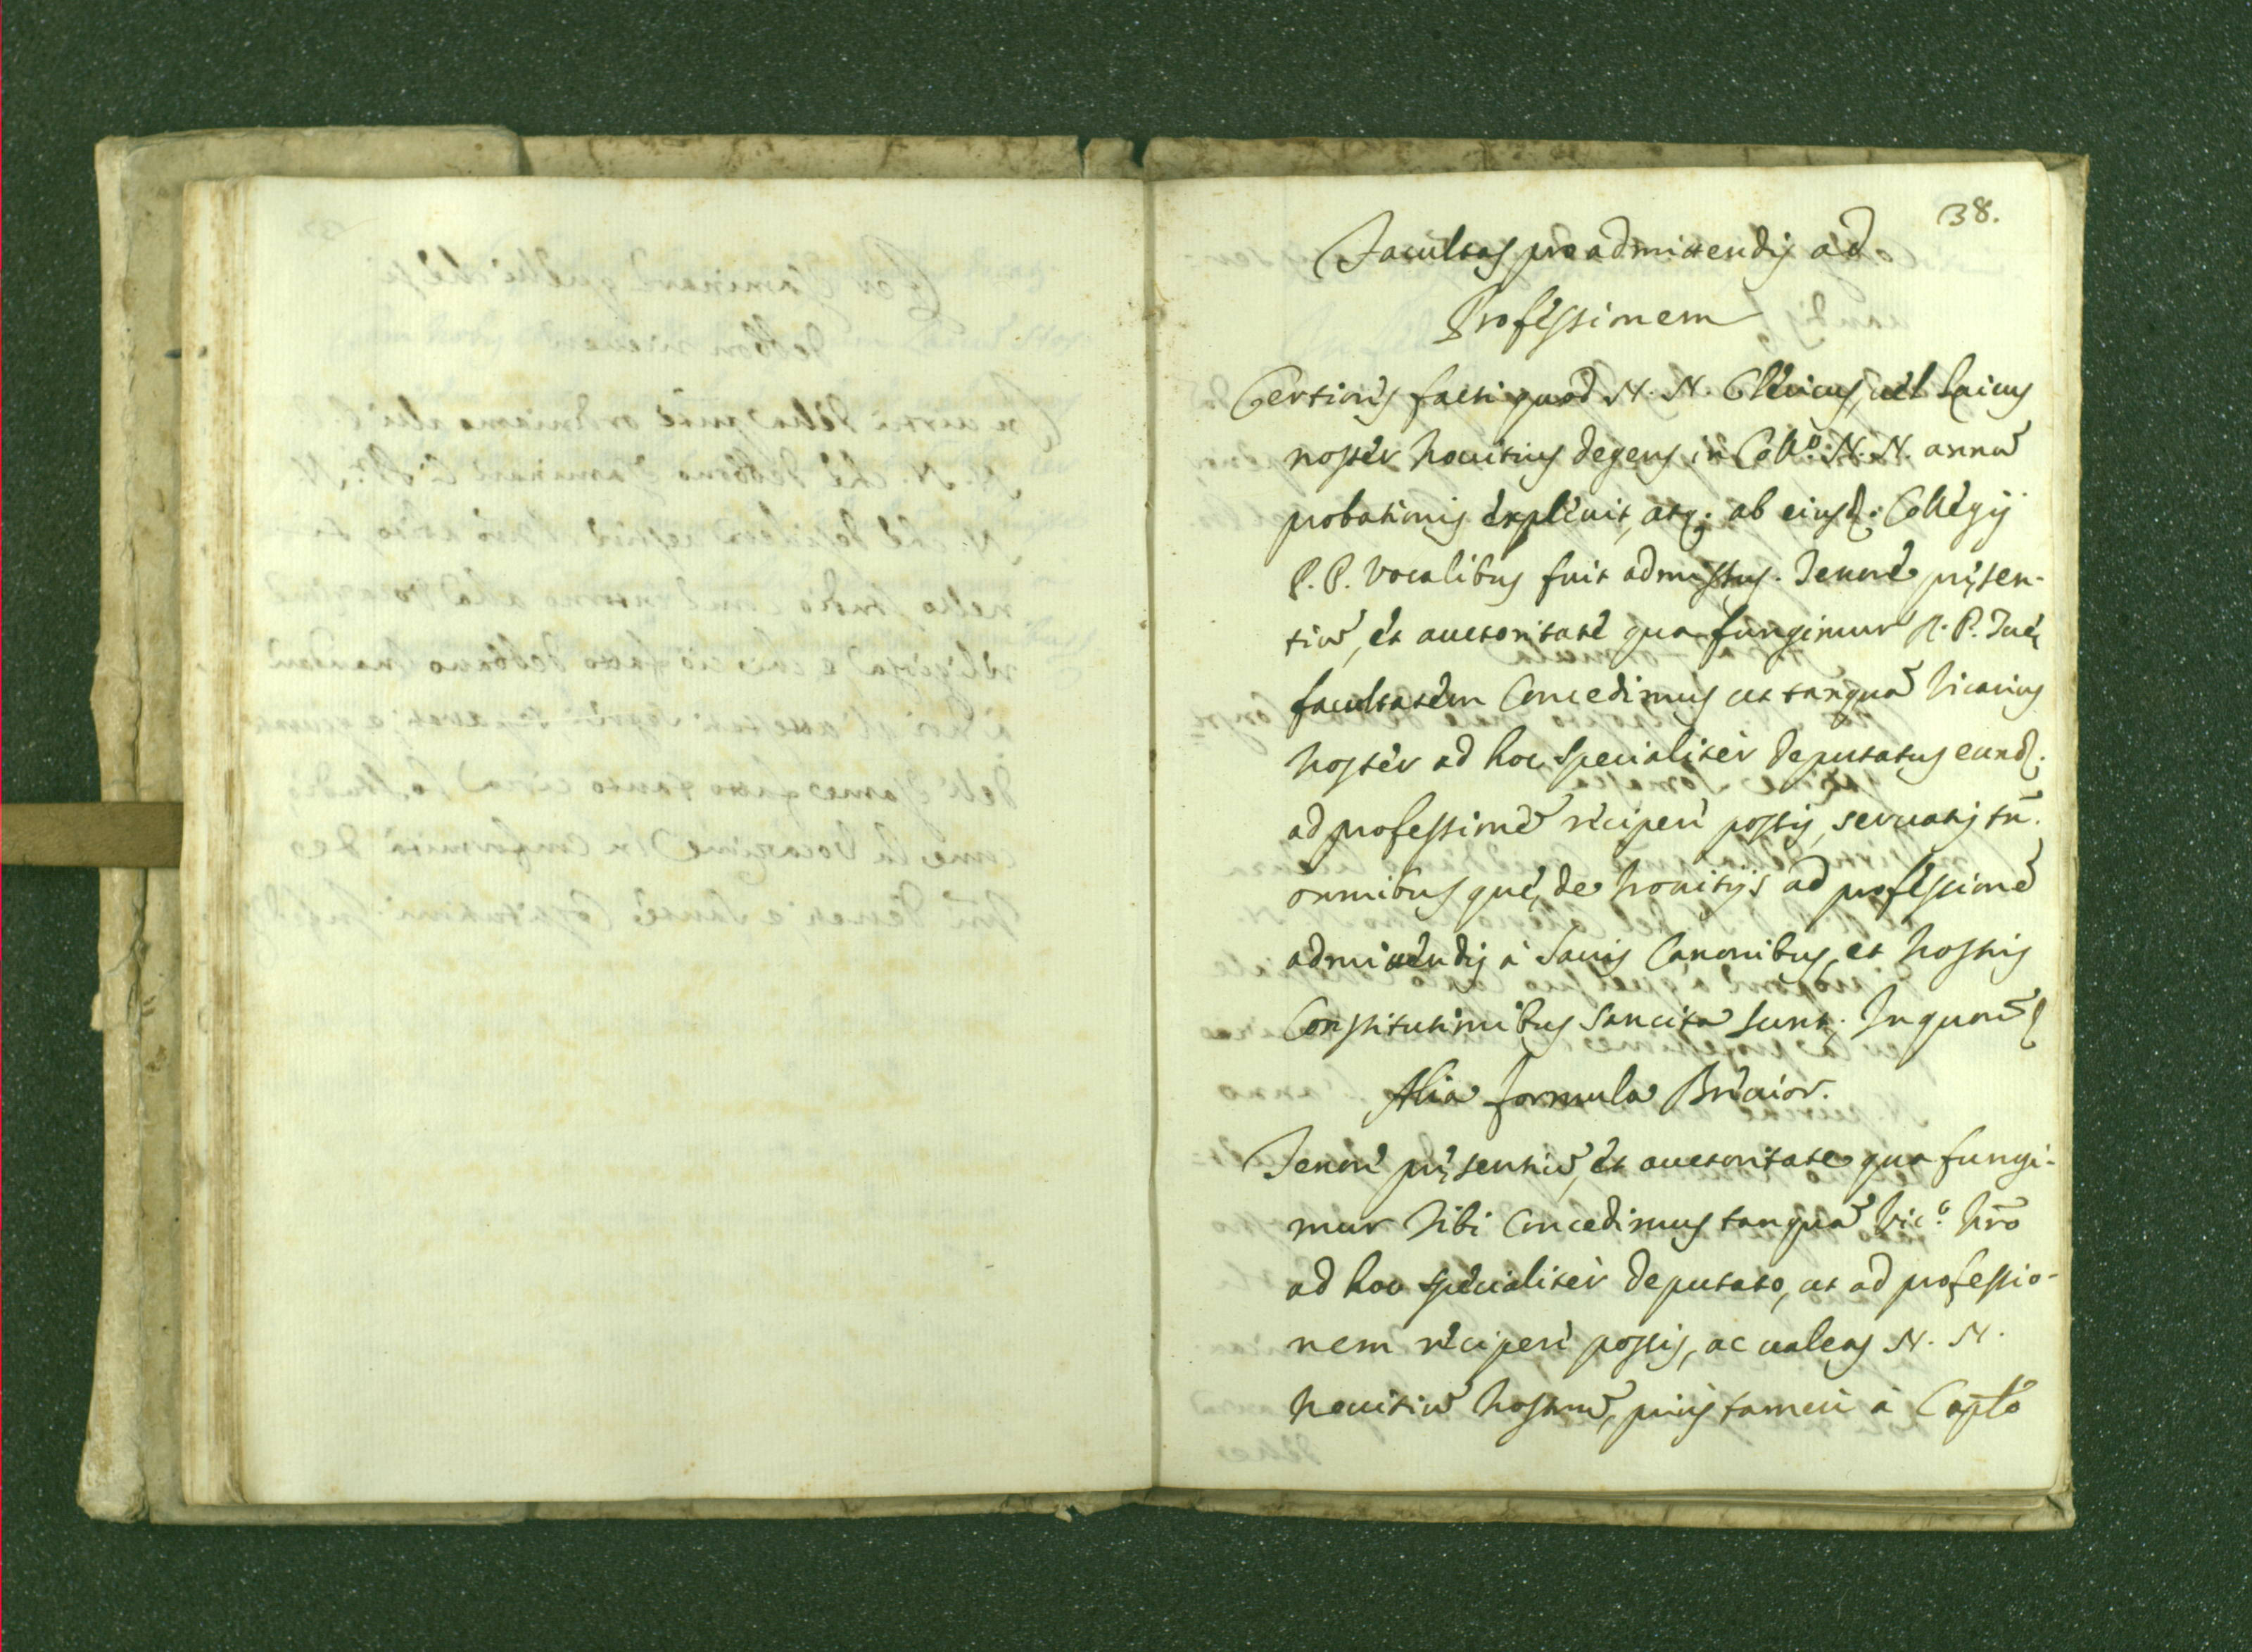 38.
Facultas pro admittendis ad
Professionem
Certioris facti quod N. N. Clericus, uel Laicus
noster Nouitius degens in Coll.º N. N. annũ
probationis expleuit, atq; ab eiusd: Collegij
P. P. Vocalibus fuit admissus. Tenore pręsen-
tiũ, et auctoritate qua fungimur R. P. Tuę
facultatem Concedimus ut tanquã Vicarius
Noster ad hoc specialiter deputatus eund:
ad professionẽ recipere possis, seruatis tñ.
omnibus quę de Nouitijs ad professionẽ
admittendis à Sacris Canonibus, et Nostris
Constitutionibus Sancita sunt. In quorũ
Alia formula Breuior.
Tenore pręsentiũ, et auctoritate qua fungi-
mur Tibi Concedimus tanquã Vic.º Nr̃o
ad hoc specialiter deputato, ut ad professio-
nem recipere possis, ac ualeas N. N.
Nouitiũ Nostrũ, prius tamen à Capĩo